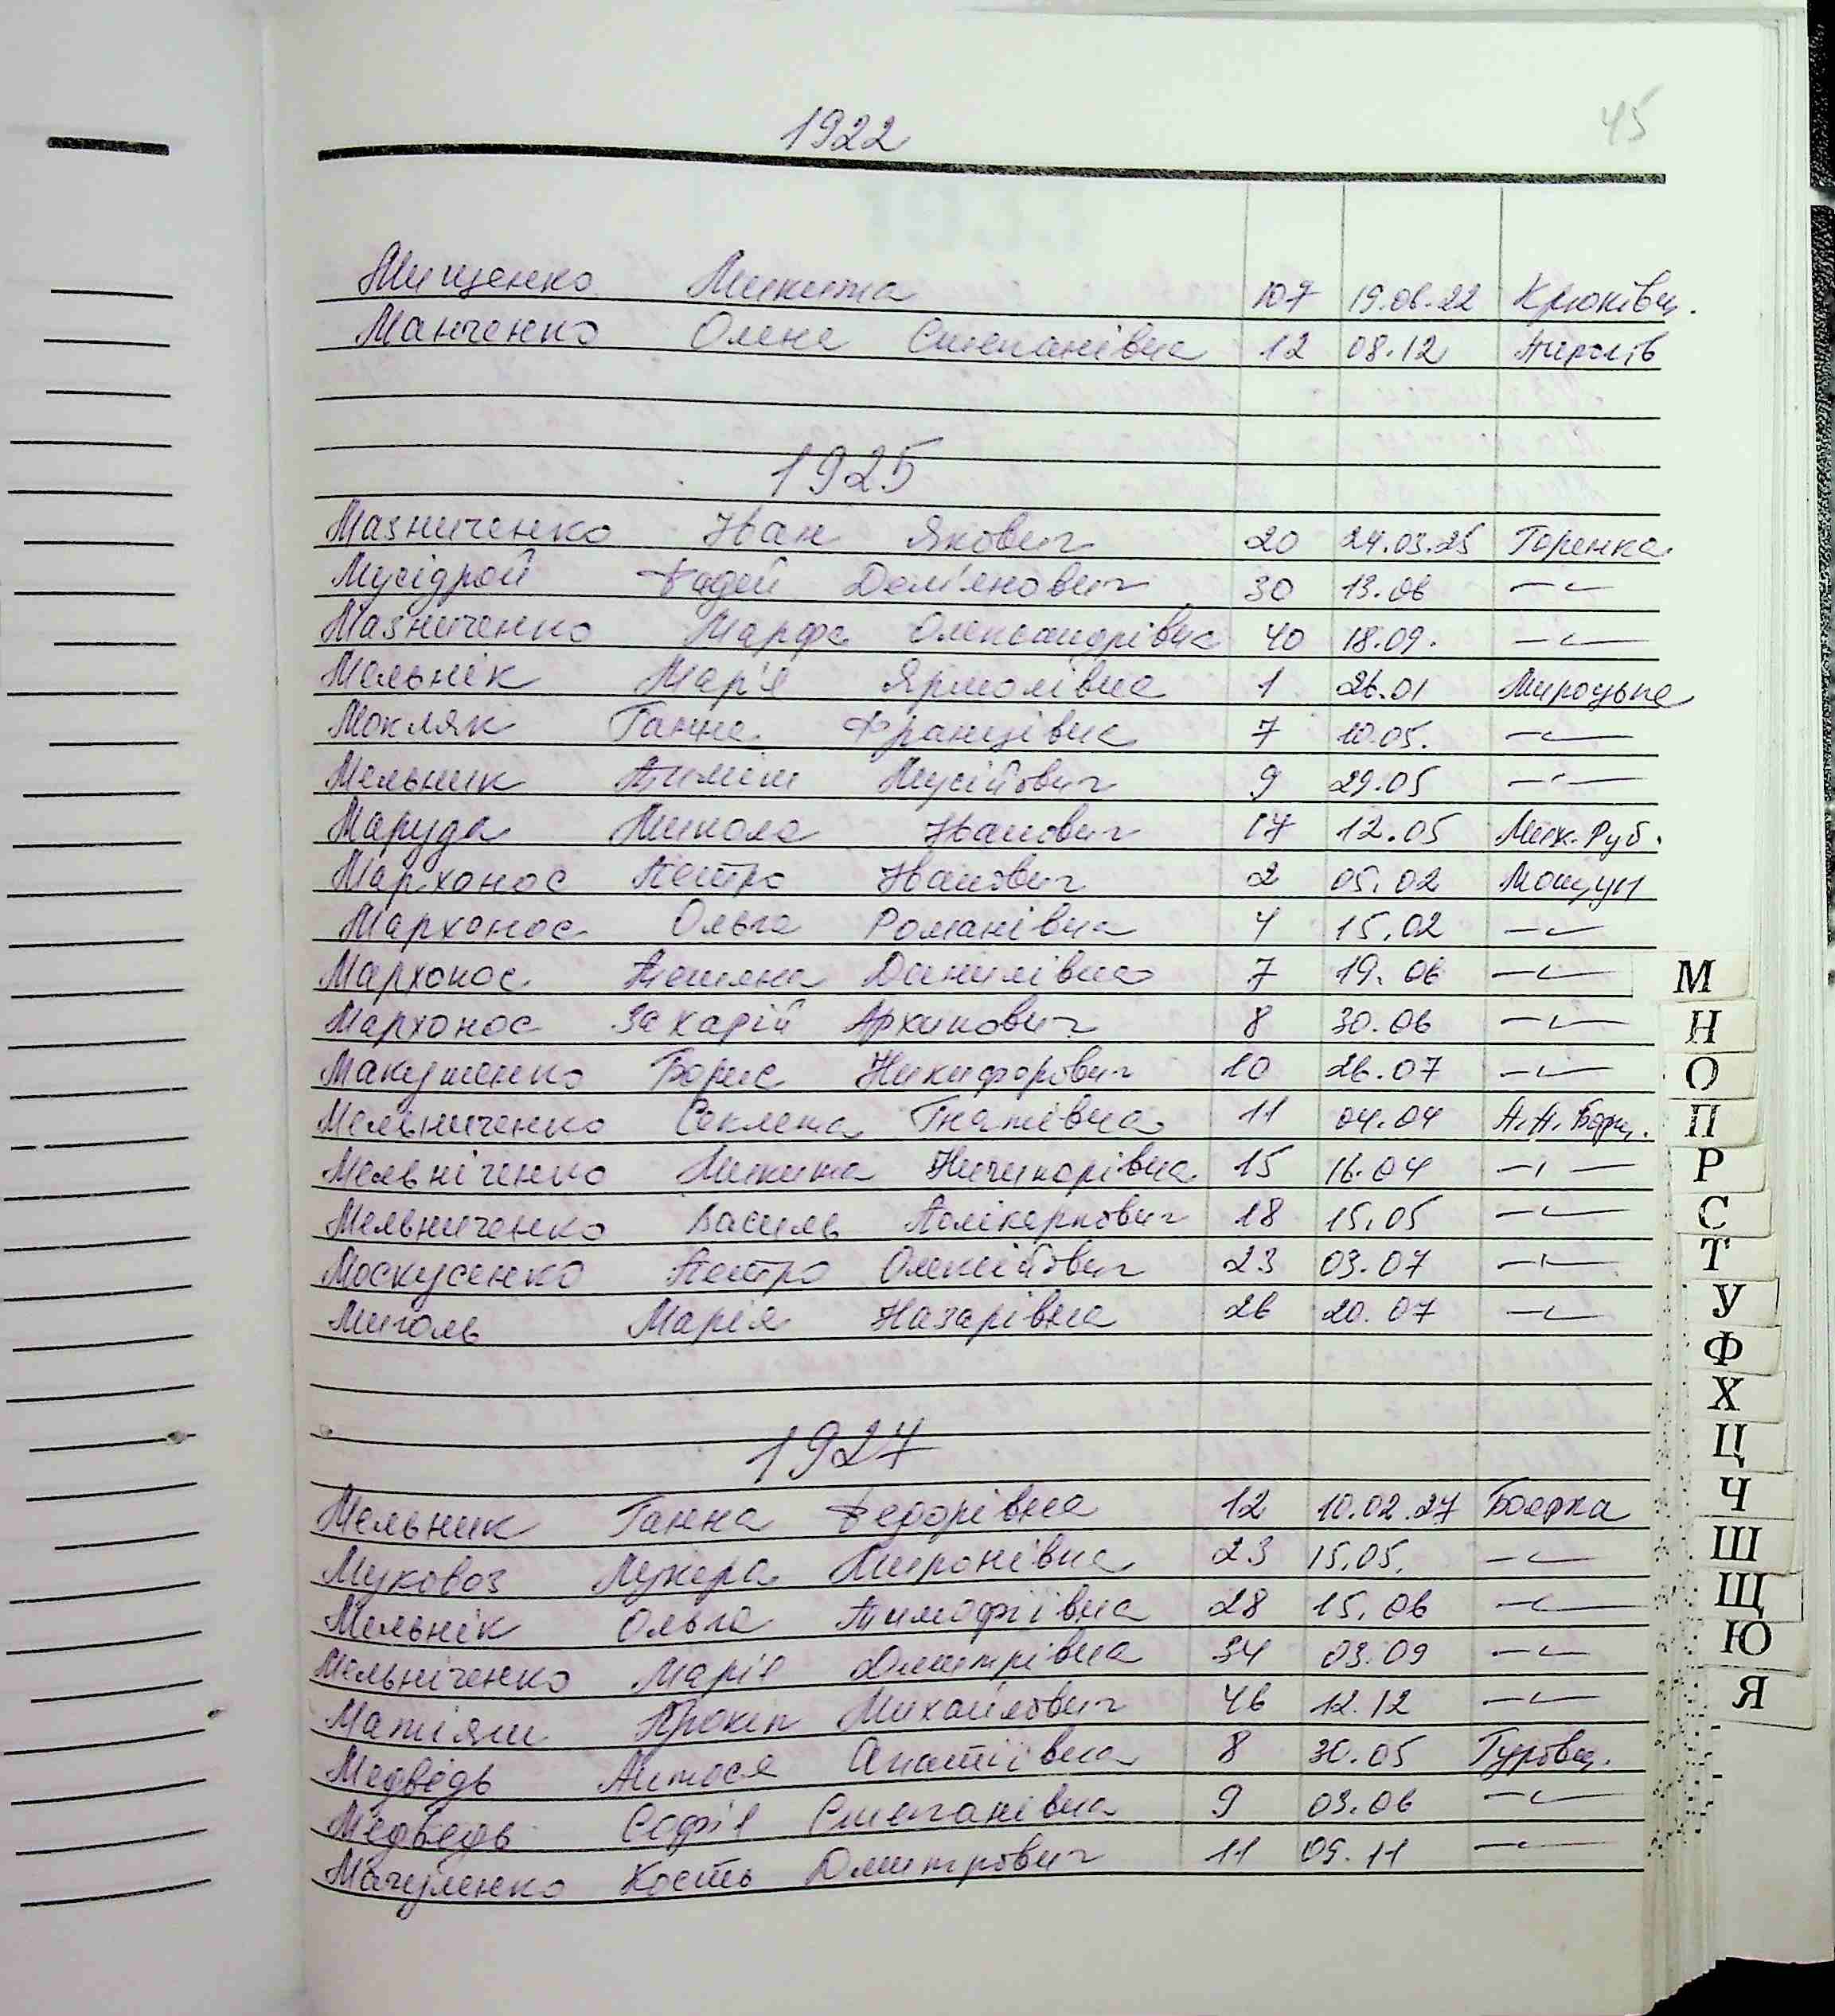 45
1922
Мищенко Микита 107 19.06.22 Крюківщ.
Манченко Олена Степанівна 12 08.12
1925
Мазниченко Іван Якович 20 24.03.25 Горенка
Мусідрой Фадей Дем'янович 30 13.06 —"—
Мазниченко Марфа Олександрівна 40 18.09. —"—
Мельнік Мар'я Ярмолівна 1 26.01 Мироцьке
Мокляк Ганна Францівна 7 10.05. —"—
Мельник Пилип Мусійович 9 29.05 —"—
Маруда Микола Іванович 17 12.05 Мих. Руб.
Мархонос Петро Іванович 2 05.02 Мощун
Мархонос Ольга Романівна 4 15.02 —"—
Мархонос Тетяна Данилівна 7 19.06 —"—
Мархонос Захарій Архипович 8 30.06 —"—
Макушенко Борис Никифорович 10 26.07 —"—
Мельниченко Секлета Гнатівна 11 04.04 П.П. Борщ.
Мельніченко Микита Ничипорівна 15 16.04 —"—
Мельниченко Василь Полікарпович 18 15.05 —"—
Москусенко Петро Олексійович 23 03.07 —"—
Миголь Марія Назарівна 26 20.07 —"—
1927
Мельник Ганна Федорівна 12 10.02.27 Боярка
Муковоз Лукера Миронівна 23 15.05. —"—
Мельнік Ольга Тимофіївна 28 15.06 —"—
Мельніченко Марія Дмитрівна 34 03.09 —"—
Матіяш Прокіп Михайлович 46 12.12 —"—
Медведь Антося Анатіївна 8 30.05 Гуровщ.
Медведь Софія Степанівна 9 03.06 —"—
Мачуленко Кость Дмитрович 11 09.11 —"—
М
Н
О
П
Р
С
Т
У
Ф
Х
Ц
Ч
Ш
Щ
Ю
Я